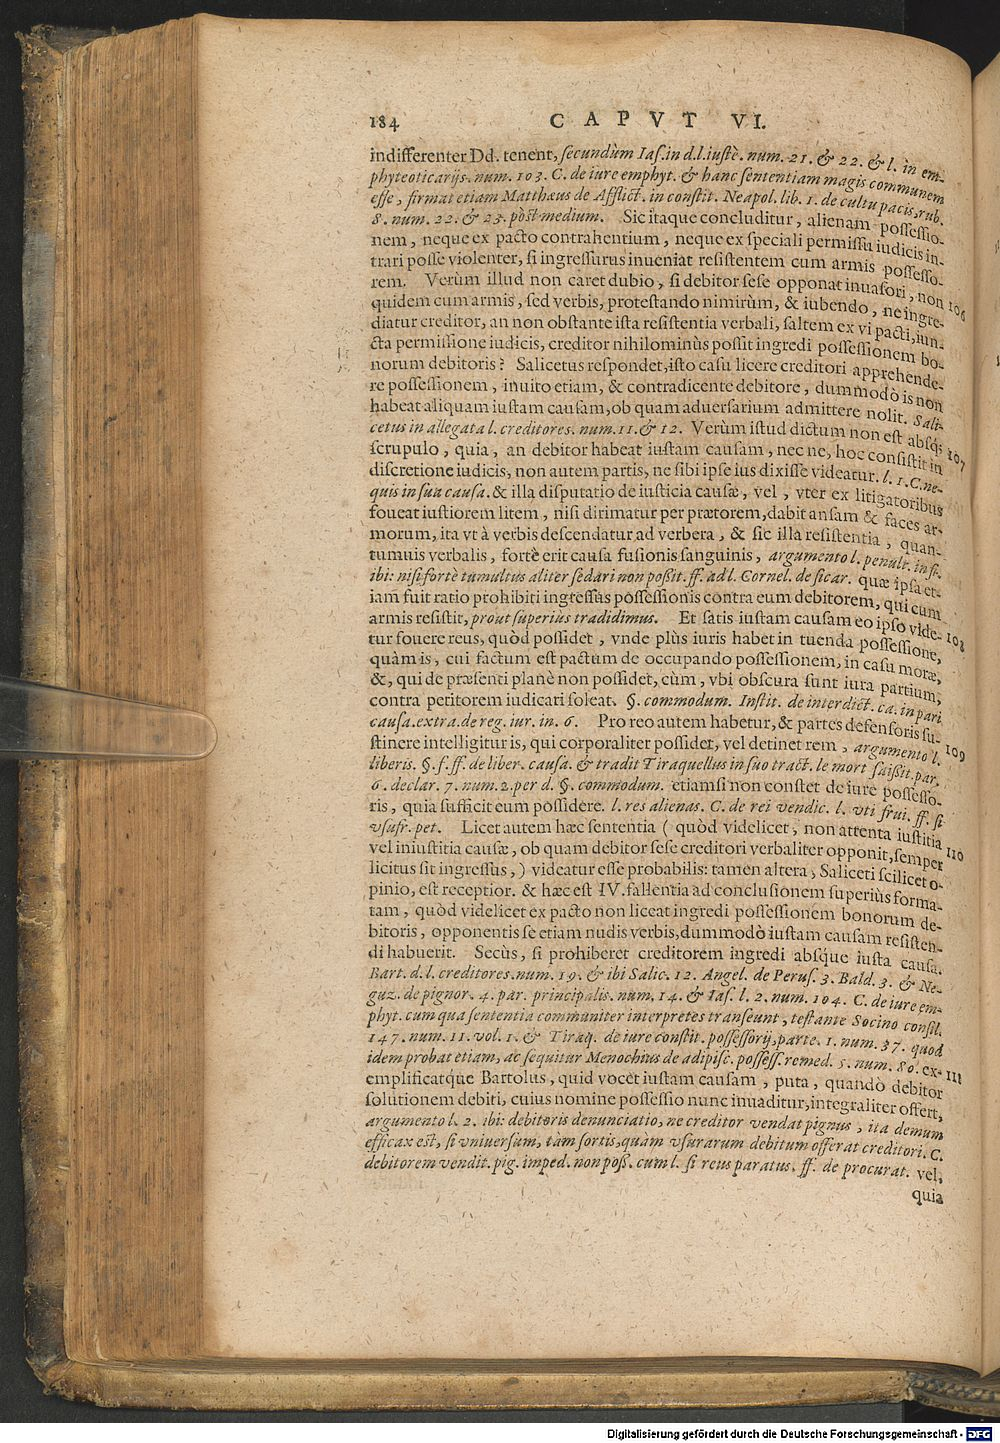 184 CAPVT VI.
indifferenter Dd. tenent, secundùm Ias. in d. l. iustè. num. 21. & 22. & l. in em-
phyteoticarijs. num. 103. C. de iure emphyt. & hanc sententiam magis communem
esse, firmat etiam Matthæus de Afflict. in constit. Neapol. lib. 1. de cultu pacis, rub.
8. num. 22. & 23. post medium. Sic itaque concluditur, alienam possessio-
nem, neque ex pacto contrahentium, neque ex speciali permissu iudicis in-
trari posse violenter, si ingressurus inueniat resistentem cum armis possesso-
rem. Verùm illud non caret dubio, si debitor sese opponat inuasori, non 106
quidem cum armis, sed verbis, protestando nimirùm, & iubendo, ne ingre-
diatur creditor, an non obstante ista resistentia verbali, saltem ex vi pacti, iun-
cta permissione iudicis, creditor nihilominùs possit ingredi possessionem bo-
norum debitoris? Salicetus respondet, isto casu licere creditori apprehende-
re possessionem, inuito etiam, & contradicente debitore, dummodò is non
habeat aliquam iustam causam, ob quam aduersarium admittere nolit. Sali-
cetus in allegata l. creditores. num. 11. & 12. Verùm istud dictum non est absq;
scrupulo, quia, an debitor habeat iustam causam, nec ne, hoc consistit in 107
discretione iudicis, non autem partis, ne sibi ipse ius dixisse videatur. l. 1. C. ne-
quis in sua causa. & illa disputatio de iusticia causæ, vel, vter ex litigatoribus
foueat iustiorem litem, nisi dirimatur per prætorem, dabit ansam & faces ar-
morum, ita vt à verbis descendatur ad verbera, & sic illa resistentia, quan-
tumuis verbalis, fortè erit causa fusionis sanguinis, argumento l. penult. in fi.
ibi: nisi fortè tumultus aliter sedari non possit. ff. ad l. Cornel. de sicar. quæ ipsa et-
iam fuit ratio prohibiti ingressus possessionis contra eum debitorem, qui cum
armis resistit, prout superiùs tradidimus. Et satis iustam causam eo ipso vide- 108
tur fouere reus, quòd possidet, vnde plùs iuris habet in tuenda possessione,
quàm is, cui factum est pactum de occupando possessionem, in casu moræ,
&, qui de præsenti planè non possidet, cùm, vbi obscura sunt iura partium,
contra petitorem iudicari soleat. §. commodum. Instit. de interdict. ca. in pari
causa. extra. de reg. iur. in. 6. Pro reo autem habetur, & partes defensoris su- 109
stinere intelligitur is, qui corporaliter possidet, vel detinet rem, argumento l.
liberis. §. f. ff. de liber. causa. & tradit Tiraquellus in suo tract. le mort saisit. par.
6. declar. 7. num. 2. per d. §. commodum. etiamsi non constet de iure possesso-
ris, quia sufficit eum possidere. l. res alienas. C. de rei vendic. l. vti frui. ff. si
vsufr. pet. Licet autem hæc sententia ( quòd videlicet, non attenta iustitia 110
vel iniustitia causæ, ob quam debitor sese creditori verbaliter opponit, semper
licitus sit ingressus, ) videatur esse probabilis: tamen altera, Saliceti scilicet o-
pinio, est receptior. & hæc est IV. fallentia ad conclusionem superiùs forma-
tam, quòd videlicet ex pacto non liceat ingredi possessionem bonorum de-
bitoris, opponentis se etiam nudis verbis, dummodò iustam causam resisten-
di habuerit. Secùs, si prohiberet creditorem ingredi absque iusta causa.
Bart. d. l. creditores. num. 19. & ibi Salic. 12. Angel. de Perus. 3. Bald. 3. & Ne-
guz. de pignor. 4. par. principalis. num. 14. & Ias. l. 2. num. 104. C. de iure em-
phyt. cum qua sententia communiter interpretes transeunt, testante Socino consil.
147. num. 11. vol. 1. & Tiraq. de iure constit. possessorij, parte. 1. num. 37. quod
idem probat etiam, ac sequitur Menochius de adipisc. possess. remed. 5. num. 80. ex- 111
emplificatque Bartolus, quid vocet iustam causam, puta, quandò debitor
solutionem debiti, cuius nomine possessio nunc inuaditur, integraliter offert,
argumento l. 2. ibi: debitoris denunciatio, ne creditor vendat pignus, ita demum
efficax est, si vniuersum, tam sortis, quàm vsurarum debitum offerat creditori. C.
debitorem vendit. pig. imped. non poss. cum l. si reus paratus. ff. de procurat. vel,
quia
Digitalisierung gefördert durch die Deutsche Forschungsgemeinschaft - DFG